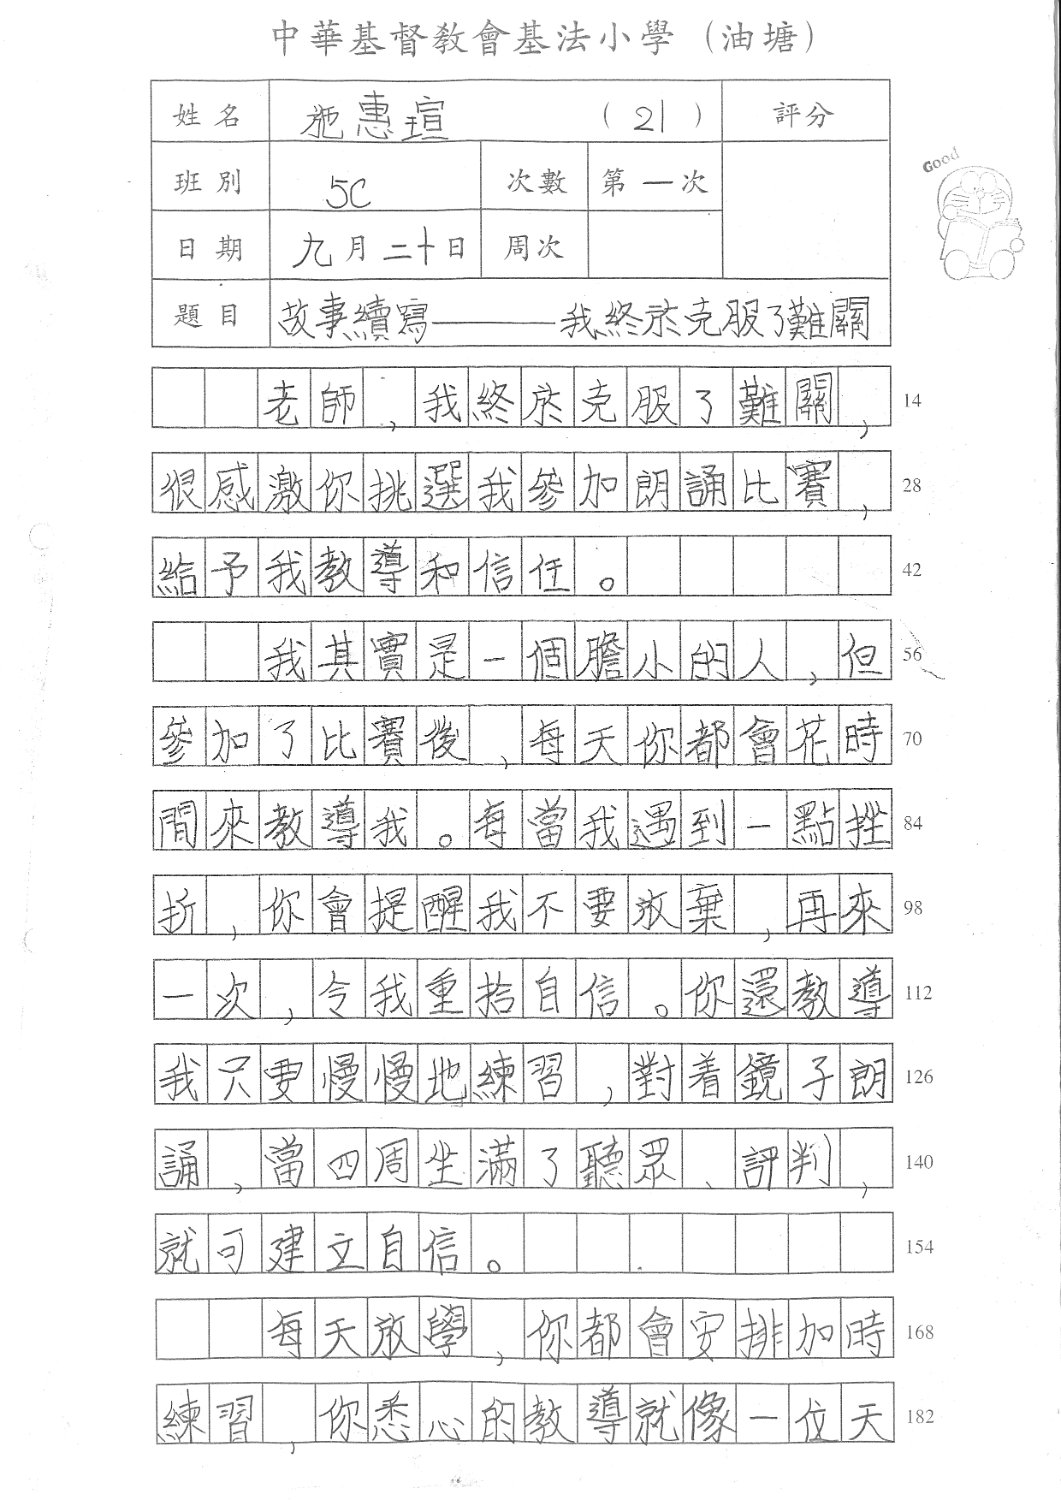 中華基督教會基法小學（油塘）
姓名 施惠瑄 （21） 評分
Good
班別 5C 次數 第一次
日期 九月二十日 周次
題目 故事續寫——我終於克服了難關
老師，我終於克服了難關， 14
很感激你挑選我參加朗誦比賽， 28
給予我教導和信任。 42
我其實是一個膽小的人，但 56
參加了比賽後，每天你都會花時 70
間來教導我。每當我遇到一點挫 84
折，你會提醒我不要放棄，再來 98
一次，令我重拾自信。你還教導 112
我只要慢慢地練習，對着鏡子朗 126
誦，當四周坐滿了聽眾、評判， 140
就可建立自信。 154
每天放學，你都會安排加時 168
練習，你悉心的教導就像一位天 182